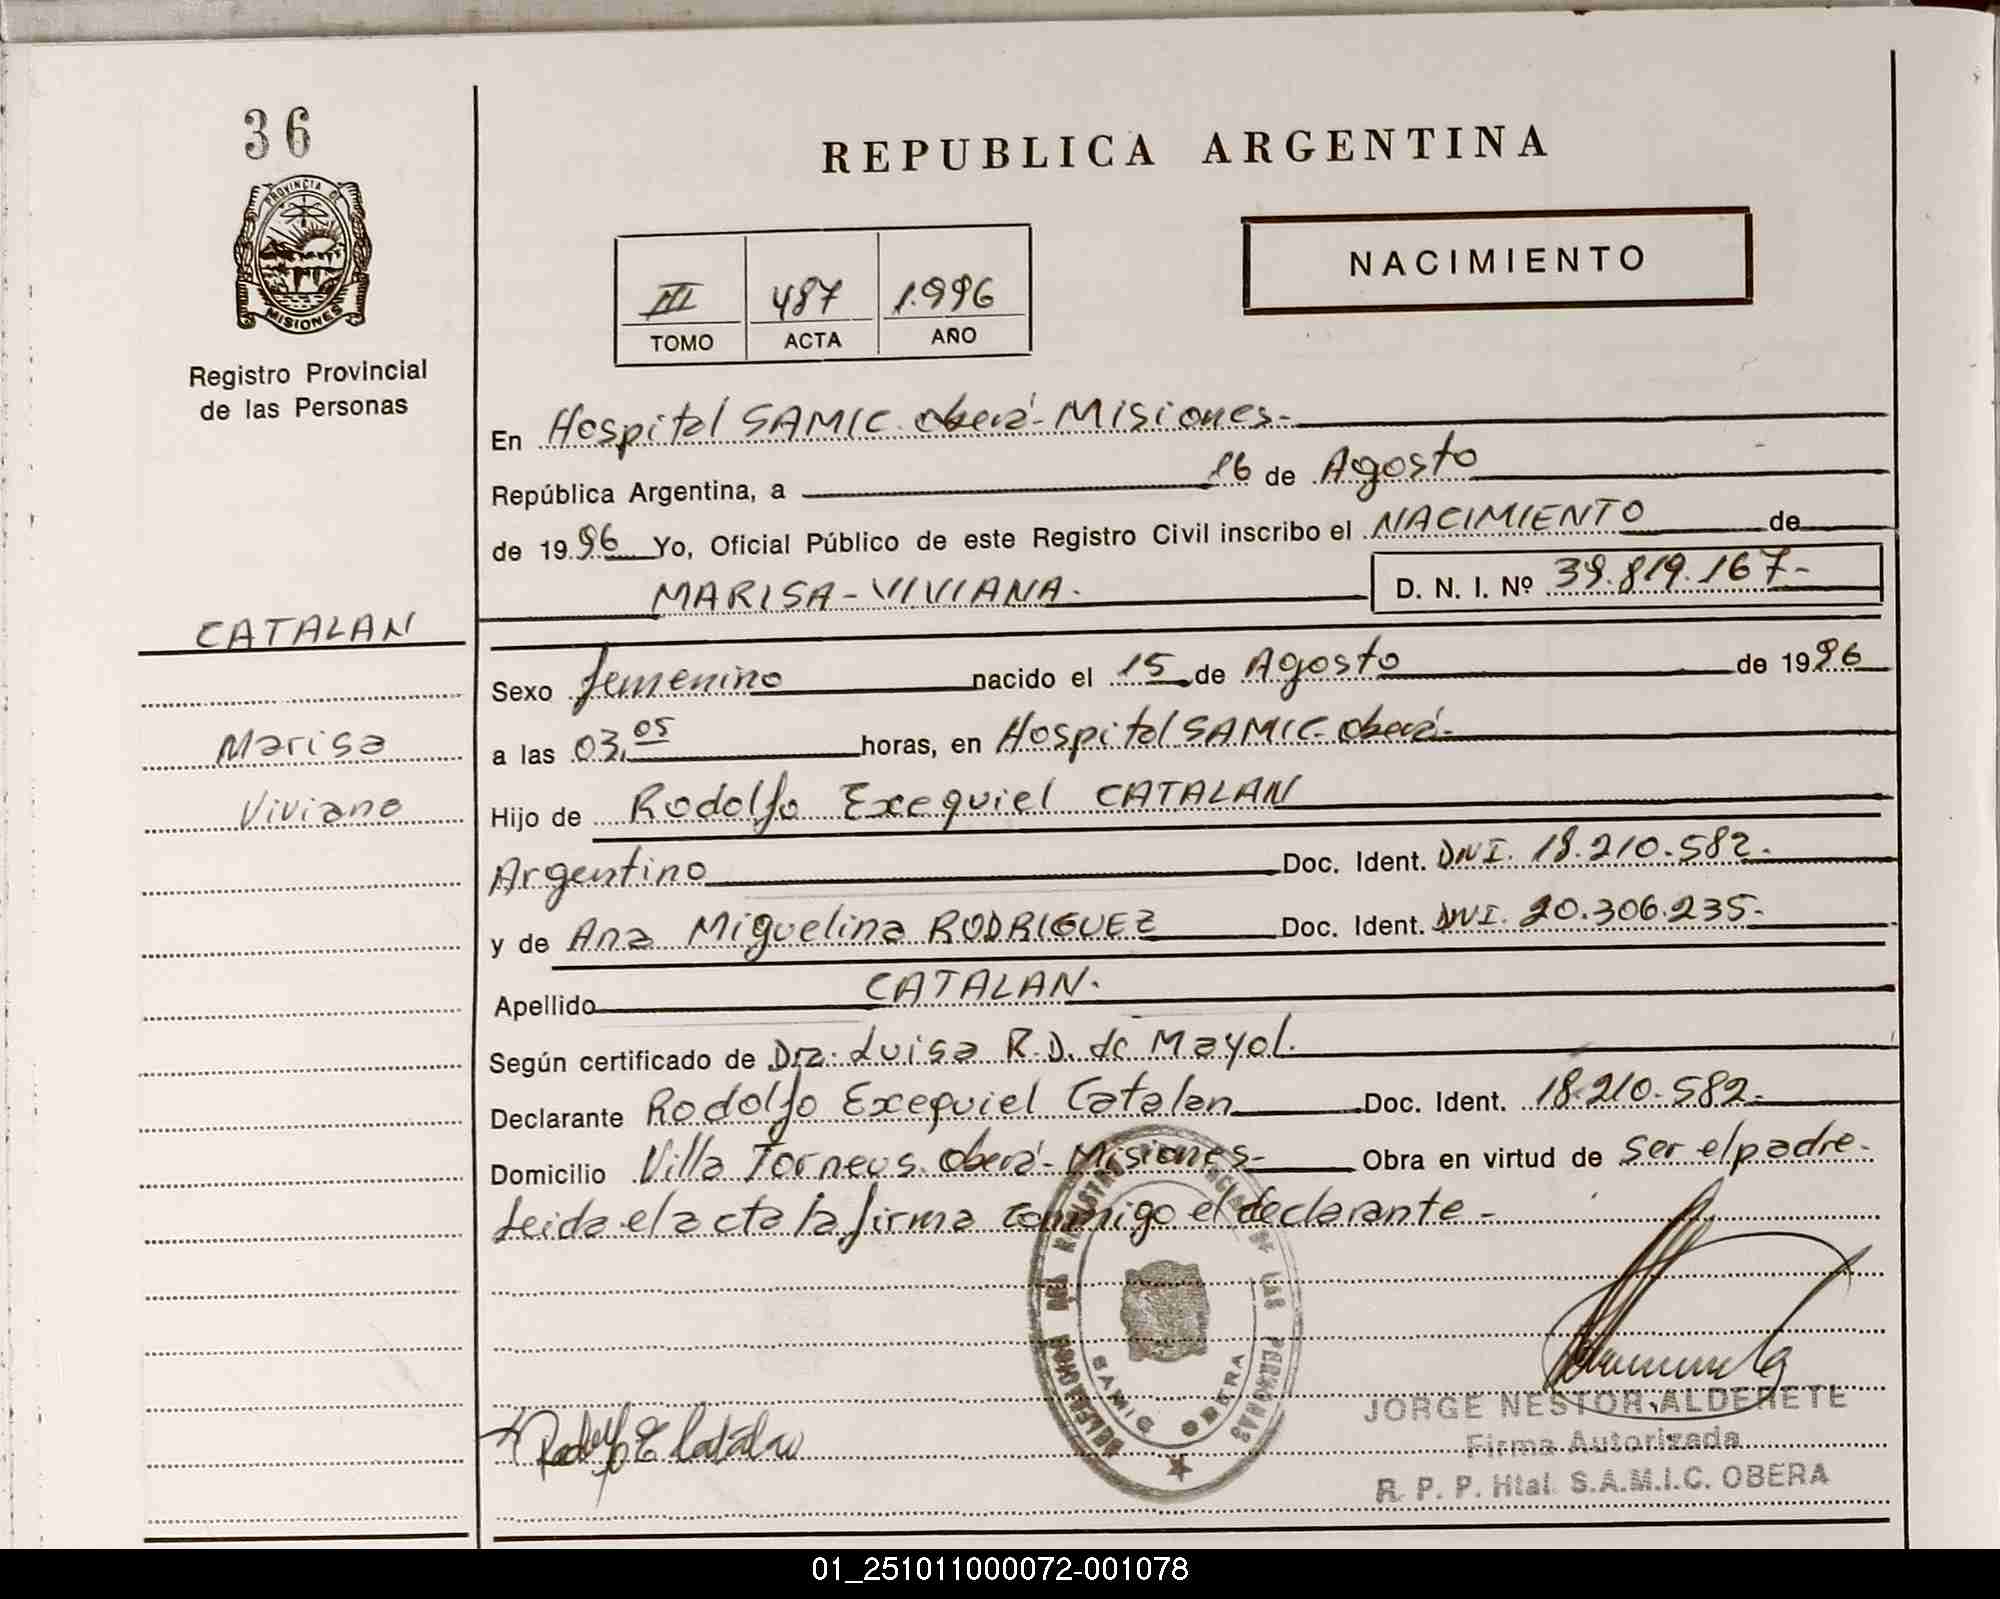 36
PROVINCIA DE
MISIONES
Registro Provincial
de las Personas
CATALAN
Marisa
Viviana
REPUBLICA ARGENTINA
NACIMIENTO
III 487 1.996
TOMO ACTA AÑO
En Hospital SAMIC. Oberá - Misiones.-
República Argentina, a 16 de Agosto
de 1996 Yo, Oficial Público de este Registro Civil inscribo el NACIMIENTO de
MARISA - VIVIANA. D. N. I. Nº 39.819.167.-
Sexo femenino nacido el 15 de Agosto de 1996
a las 03,05 horas, en Hospital SAMIC - Oberá.-
Hijo de Rodolfo Exequiel CATALAN
Argentino Doc. Ident. DNI. 18.210.582.-
y de Ana Miguelina RODRIGUEZ Doc. Ident. DNI. 20.306.235.-
Apellido CATALAN.
Según certificado de Dra. Luisa R. D. de Mayol.
Declarante Rodolfo Exequiel Catalan Doc. Ident. 18.210.582.-
Domicilio Villa Torneus. Oberá - Misiones - Obra en virtud de ser el padre.-
Leida el acta la firma conmigo el declarante.-
DELEGACION DEL REGISTRO PROVINCIAL DE LAS PERSONAS
SAMIC OBERA
Rodolfo E Catalan
JORGE NESTOR ALDERETE
Firma Autorizada
R. P. P. Htal. S.A.M.I.C. OBERA
01_251011000072-001078